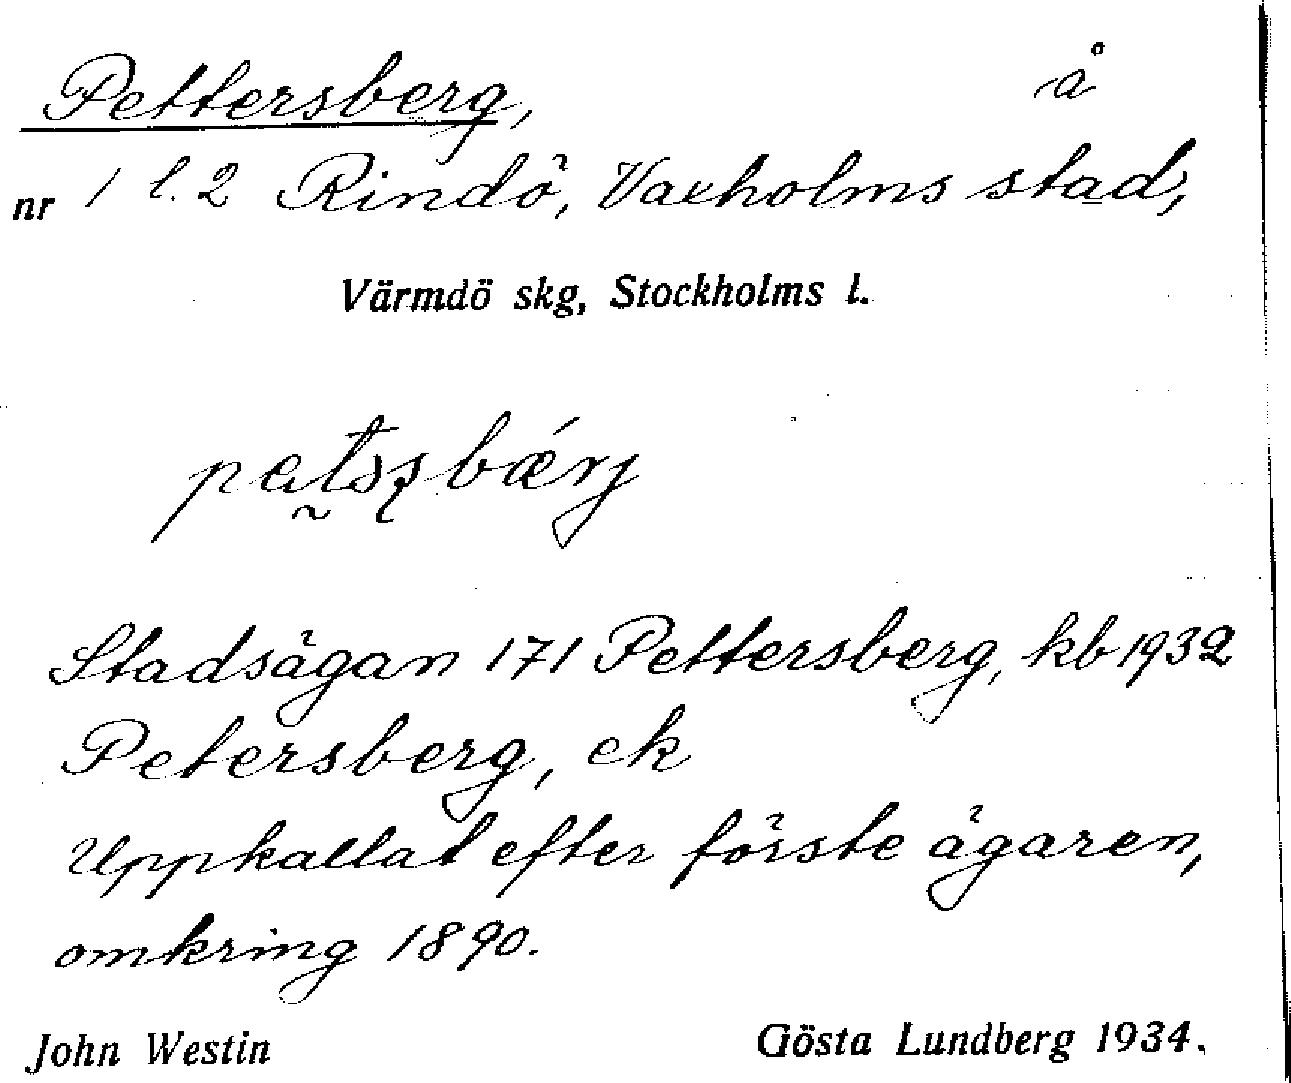 Pettersberg, å
nr 1 l. 2 Rindö, Vaxholms stad,
Värmdö skg, Stockholms l.
Stadsägan 171 Pettersberg, kb 1932
Petersberg, ek
Uppkallat efter förste ägaren,
omkring 1890.
John Westin Gösta Lundberg 1934.